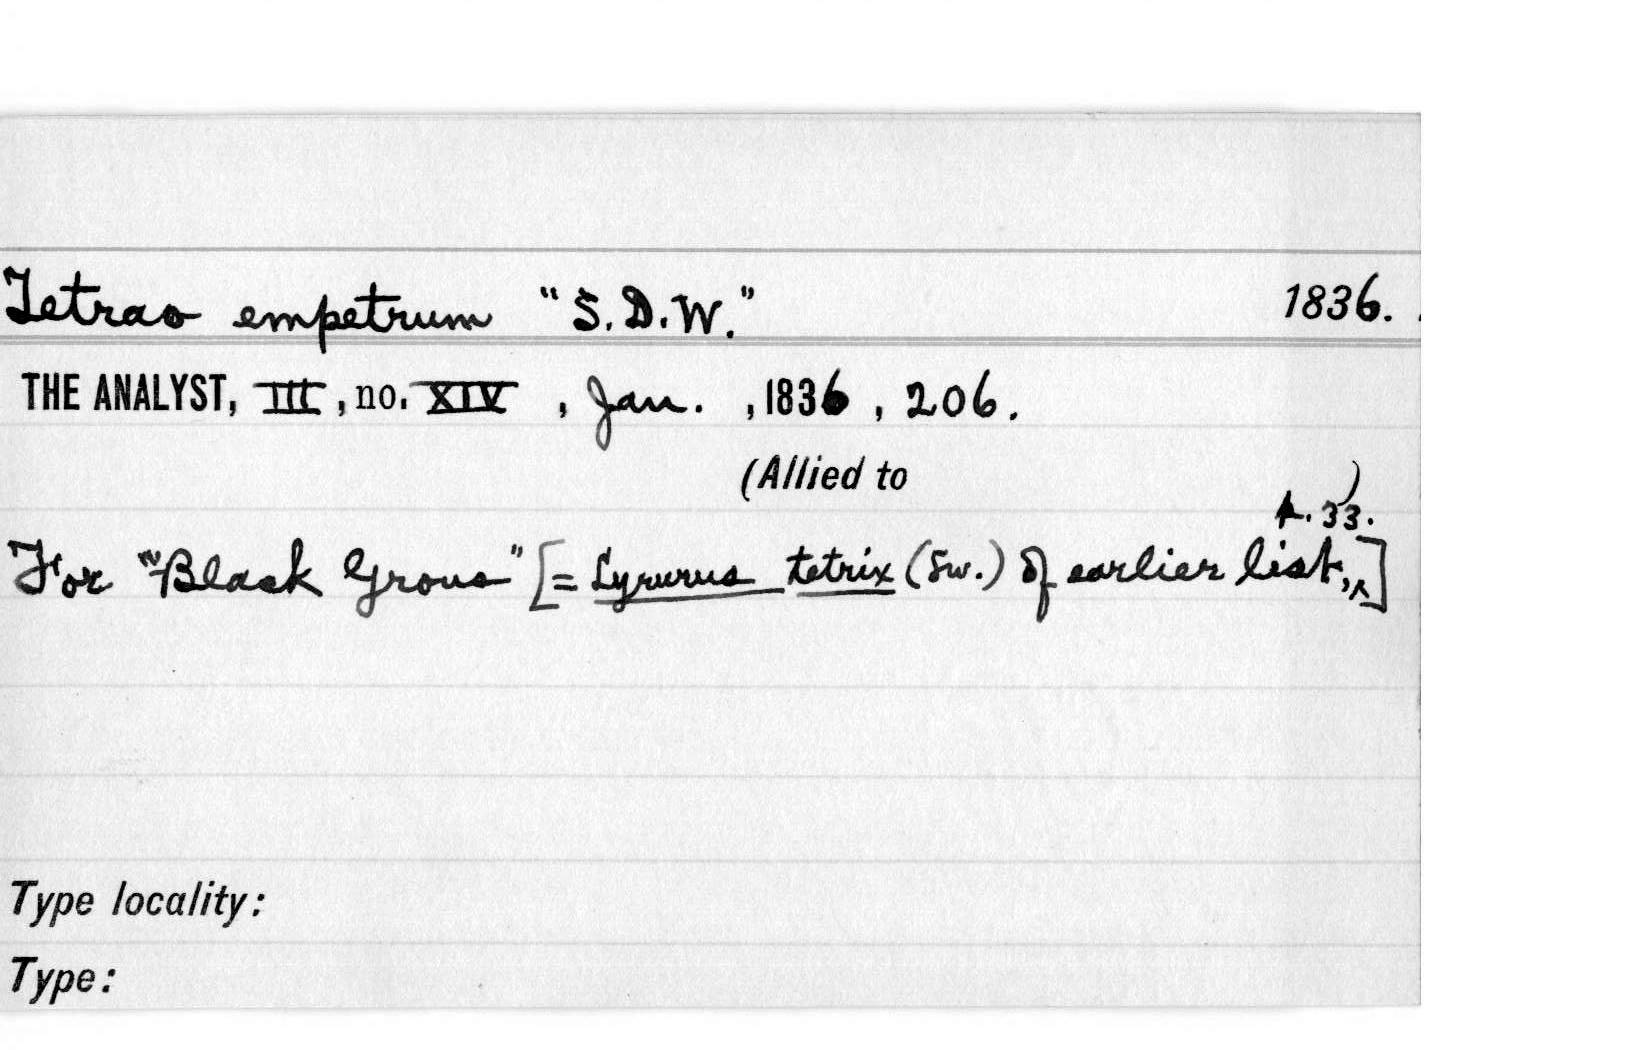 Tetrao empetrum "S.D.W." 1836.
THE ANALYST, III, no. XIV, Jan., 1836, 206.
(Allied to )
p. 33.
For "Black Grous" [= Lyrurus tetrix (Sw.) of earlier list,^]
Type locality:
Type: